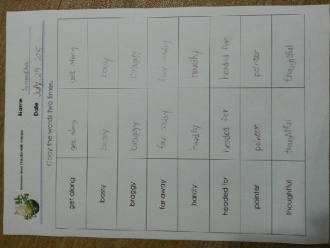 Name
Date July 29, 2015
Copy the words two times.
get along get along get along
bossy bossy bossy
braggy braggy braggy
far away far away far away
handy handy handy
headed for headed for headed for
pointer pointer pointer
thoughtful thoughtful thoughtful